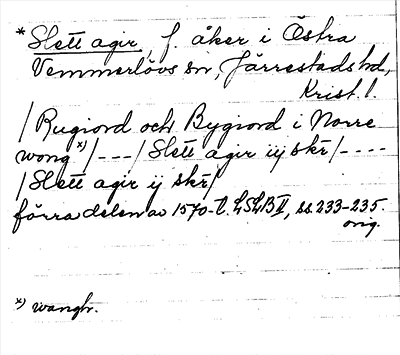 * Slett agir, f. åker i Östra
Vemmerlövs sn, Järrestads hd,
Krist. l.
/ Rugiord och Bygiord i Norre
wong x) / --- / Slett agir iij skr / ----
/ Slett agir ij skr /
förra delen av 1570-t. LSLB II, ss. 233-235.
orig.
x) wanghr.